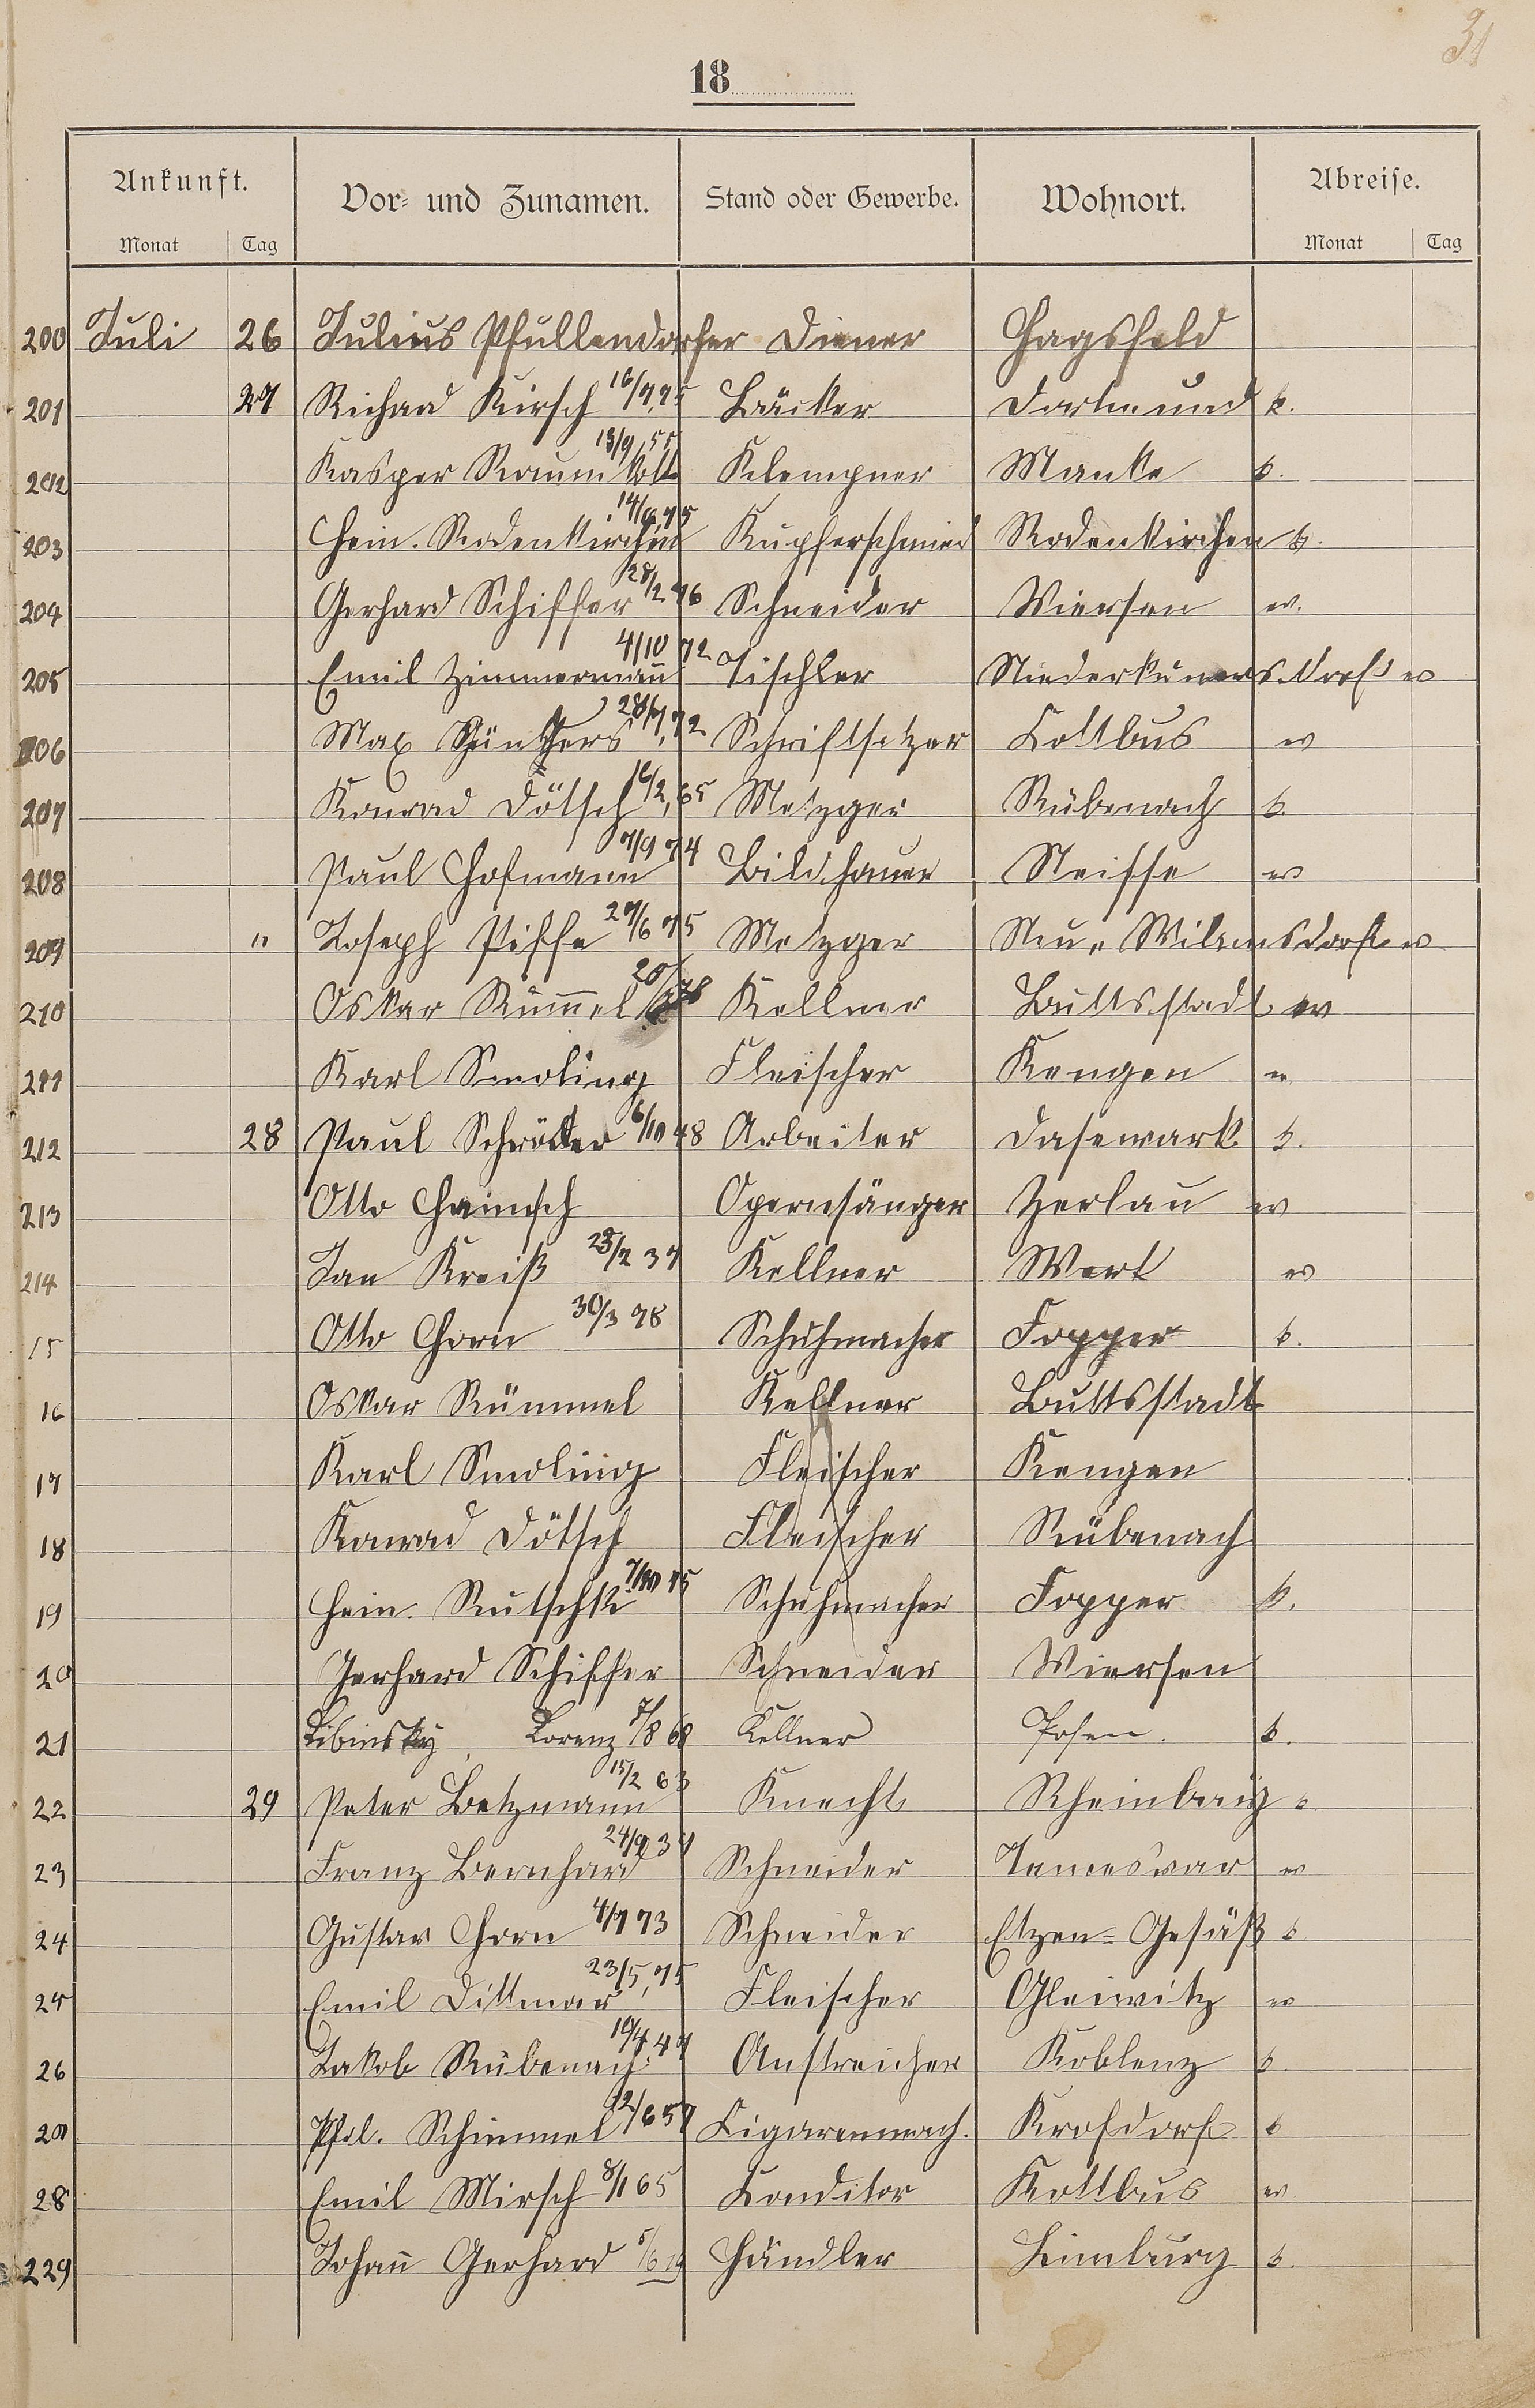 31
18
Ankunft. Vor- und Zunamen. Stand oder Gewerbe. Wohnort. Abreise.
Monat Tag Monat Tag
200 Juli 26 Julius Pfullendorfer Diener Hagsfeld
201 27 Richard Kirsch 16/7,75 Bäcker Dortmund k.
202 Kasper 13/9,55 Klempner Manke k.
203 Hein. Rodenkirchen 14/9,75 Kupferschmied Rodenkirchen k.
204 Gerhard Schiffer 28/2 76 Schneider Viersen ev.
205 Emil Zimmermann 4/10 72 Tischler ev
206 Max Günthers 28/7,72 Schriftsetzer Cottbus ev
207 Konrad Dötsch 16/2,65 Metzger Rübenach k.
208 Paul Hofmann 7/9 74 Bildhauer Neisse ev
209 " Joseph Piffe 27/6 75 Metzger ev
210 Oskar Rümmel 20/ Kellner Buttsstadt ev
211 Karl Smoling Fleischer Kengen
212 28 Paul Schröder 6/10 48 Arbeiter Dasewark k.
213 Otto Hainsch Opernsänger Zerlau ev
214 Jan Kreiß 28/2 37 Kellner Wert ev
15 Otto Horn 30/3 78 Schuhmacher Fopper k.
16 Oskar Rümmel Kellner Buttsstadt
17 Karl Smoling Fleischer Kengen
18 Konrad Dötsch Fleischer Rübenach
19 Hein. Rutschki 7/10 75 Schuhmacher Fopper k.
20 Gerhard Schiffer Schneider Viersen
21 Libinsky, Lorenz 7/8 68 Kellner Posen. k.
22 29 Peter Betzmann 15/2 63 Knecht Rheinbay
23 Franz Bernhard 24/9 37 Schneider Temesvar ev
24 Gustav Horn 4/7 73 Schneider Etzen-Gesäß k
25 Emil Dittmar 23/5,75 Fleischer Gleiwitz ev
26 Jakob Rübenach 19/4 47 Anstreicher Koblenz k
27 Phil. Schimmel 12/6 57 Cigarrenmach. Krofdorf k
28 Emil Mirsch 8/1 65 Conditor Kottbus ev
229 Johann Gerhard 5/6 Händler Limburg k.